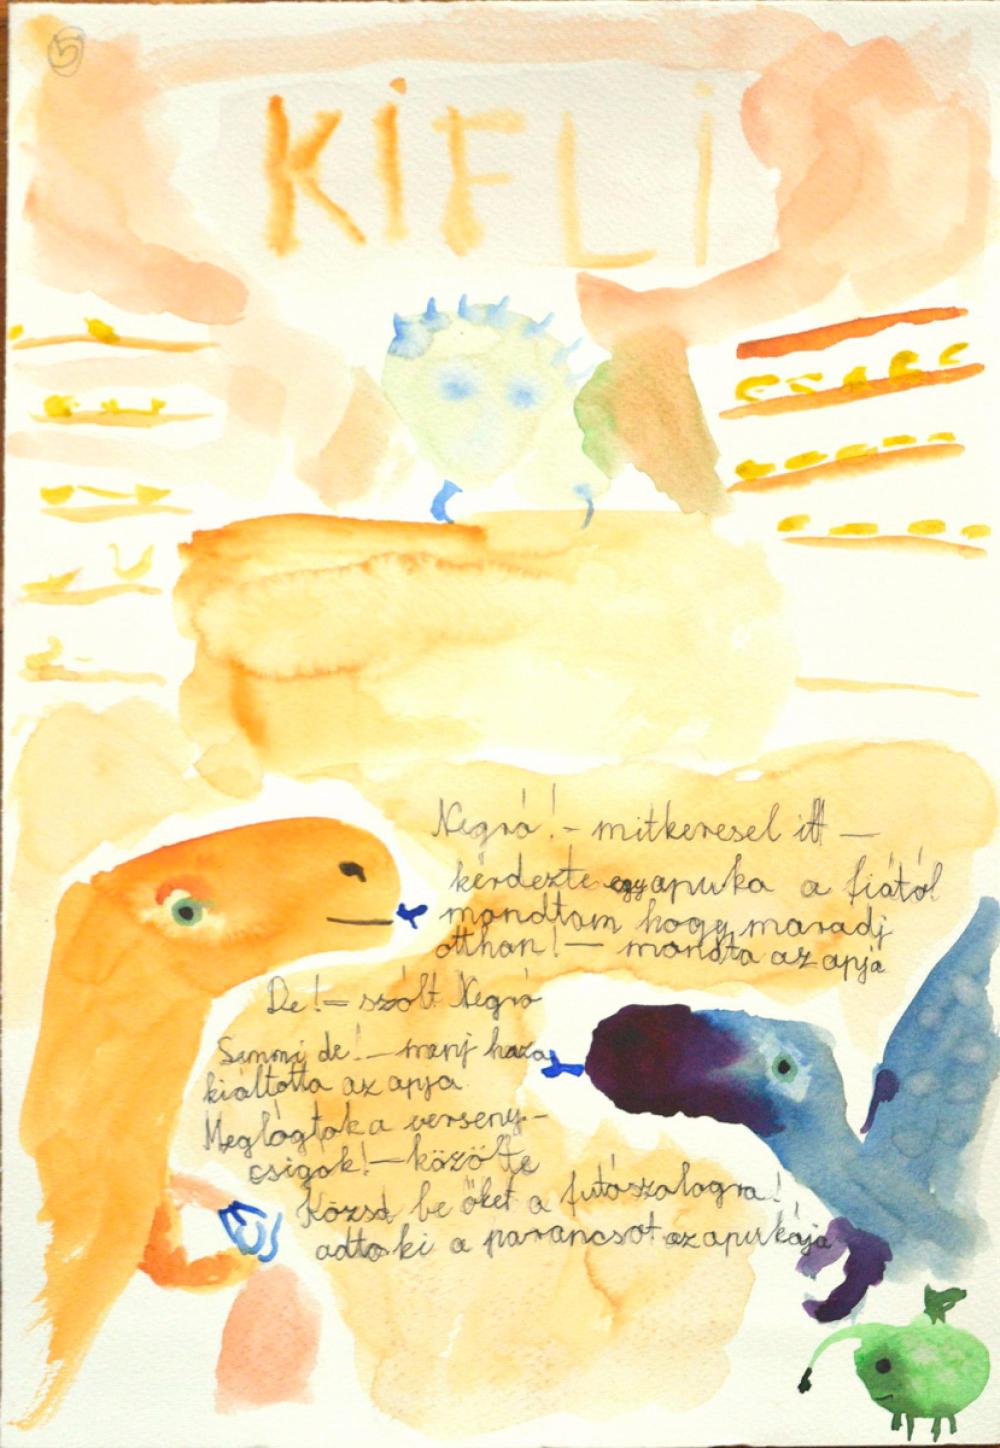 5
KIFLI
Negró! - mitkeresel itt —
kérdezte apuka a fiától
mondtam hogy maradj
otthon! — mondta az apja
De! — szólt Negró
Semmi de! — menj haza
kiáltotta az apja
Meglógtak a verseny-
csigák! — közölte
Közsd be őket a futószalagra!
adta ki a parancsot az apukája